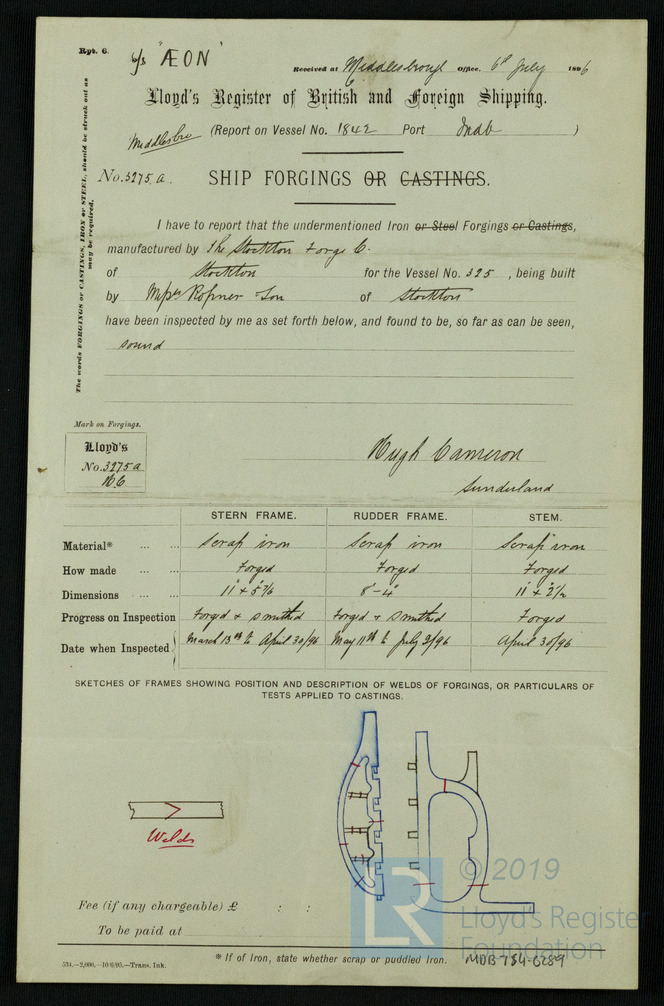 Rpt. 6.
S/s "ÆON"
Received at Middlesbrough Office, 6th July 1896
Lloyd's Register of British and Foreign Shipping.
Middlesbro (Report on Vessel No. 1842 Port Mdb )
No. 3275a. SHIP FORGINGS OR CASTINGS.
The words FORGINGS or CASTINGS, IRON or STEEL, should be struck out as
may be required.
I have to report that the undermentioned Iron or Steel Forgings or Castings,
manufactured by The Stockton Forge Co.
of Stockton for the Vessel No. 325 , being built
by Messrs Ropner & Son of Stockton
have been inspected by me as set forth below, and found to be, so far as can be seen,
sound
Mark on Forgings.
Lloyd's
No. 3275a
Hugh Cameron
Sunderland
STERN FRAME. RUDDER FRAME. STEM.
Material* ... ... Scrap iron Scrap iron Scrap iron
How made ... ... Forged Forged Forged
Dimensions ... ... 8"-4" 11" × 2 1/2
Progress on Inspection Forged & smithed Forged & smithed Forged
Date when Inspected March 13th to April 30/96 May 11th to July 2/96 April 30/96
SKETCHES OF FRAMES SHOWING POSITION AND DESCRIPTION OF WELDS OF FORGINGS, OR PARTICULARS OF
TESTS APPLIED TO CASTINGS.
Welds
Fee (if any chargeable) £ : :
To be paid at
* If of Iron, state whether scrap or puddled Iron.
534.—2,000.—10/6/95.—Trans. Ink.
MDB 784-0289
LR
© 2019
Lloyd's Register
Foundation